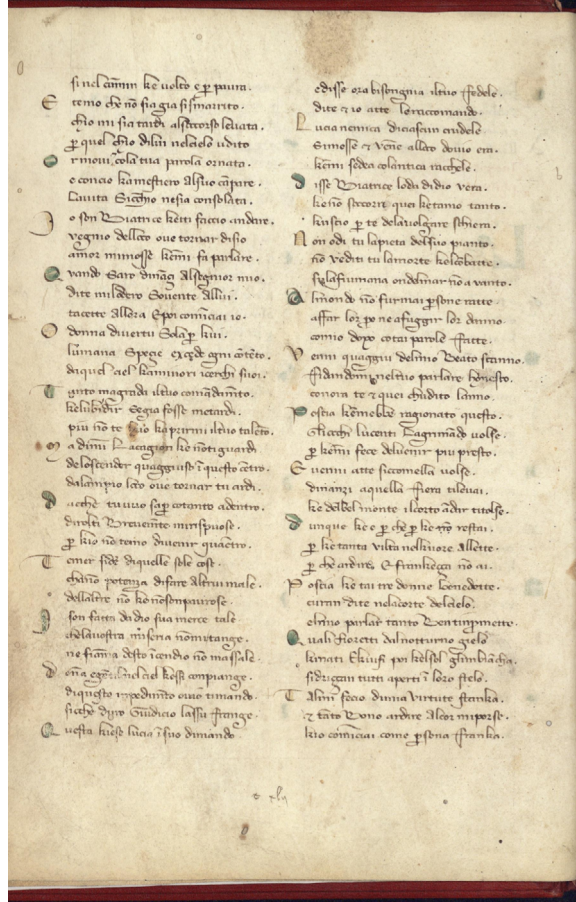 si nel cãmin ke volto e p paura.
E temo che nõ sia gia sismarrito.
chio mi sia tardi alsoccorso levata.
p quel chio dilui nelcielo udito
Or movi cola tua parola ornata.
e concio kamestiero alsuo cãpare.
laiuta Sicchio nesia consolata.
Io son Biatrice keti faccio andare.
vegnio delloco ove tornar disio
amor mimosse kemi fa parlare.
Quando Saro dinãçi alsegnior mio.
dite milodero Sovente allui.
tacette allora Epoi cominciai io.
O donna divertu Sola p kui.
lumana Spezie excede ogni cõtẽto.
daquel ciel kaminori icerchi suoi.
Tanto magrada iltuo comãdamẽto.
kelubidir Segia fosse metardi.
piu nõ te kio kaprirmi iltuo talẽto.
Ma dimi Lacagion ke nõti guardi
deloscender quaggiuso ĩ questo cẽtro.
dalampio loco ove tornar tu ardi.
Dache tu vuo sap cotanto adentro.
dirolti Brevemẽte mirispuose.
p kio nõ temo divenir quaẽtro.
Temer side diquelle sole cose.
chãno potenza difare Altrui male.
dellaltre nõ ke nõsonpaurose.
Io son fatta dadio sua merce tale
chelavostra miseria nõmitange.
ne fiama desto ĩcendio nõ massale.
Dona egẽtil nelciel kessi compiange.
diquesto ĩpedimẽto ovio timando.
sicche duro Giudicio lassu frange.
Questa kiese lucia ĩ suo dimando.
edisse ora bisongnia iltuo ffedele.
dite 7 io atte loraccomando.
Lucia nemica diciascun crudele
Simosse 7 vẽne alloco dovio era.
kemi sedea colantica rachele.
Disse Biatrice loda didio vera.
ke nõ soccorri quei ketamo tanto.
kuscio p te delavolgare schiera.
Non odi tu lapieta delsuo pianto.
nõ vedi tu lamorte kelcõbatte.
sulafiumana ondelmar nõ a vanto.
Almondo nõ furmai psone ratte
affar lor po ne afuggir lor danno
comio dopo cotai parole ffatte.
Venni quaggiu delmio Beato scanno.
fidandomi neltuo parlare honesto.
conora te 7 quei chudito lanno.
Poscia kemebbe ragionato questo.
Gliocchi lucenti Lagrimãdo volse.
p kemi fece delvenir piu presto.
E venni atte siccomella volse.
dinanzi aquella fiera tilevai.
ke delbel monte ilcorto ãdar titolse.
Dunque ke e p che p ke restai.
p ke tanta vilta nelkuore Allette.
p che ardire E frankezza nõ ai.
Poscia ke tai tre donne benedette.
curan dite nelacorte delcielo.
elmio parlar tanto Ben timpmette.
Quali fioretti dal notturno gielo
kinati E kiusi poi kelsol glinbiãcha.
sidriççan tutti aperti ĩ loro stelo.
Talmi fecio dimia virtute stanka.
7 tãto Bono ardire Alcor micorse.
kio comĩciai come psona ffranka.